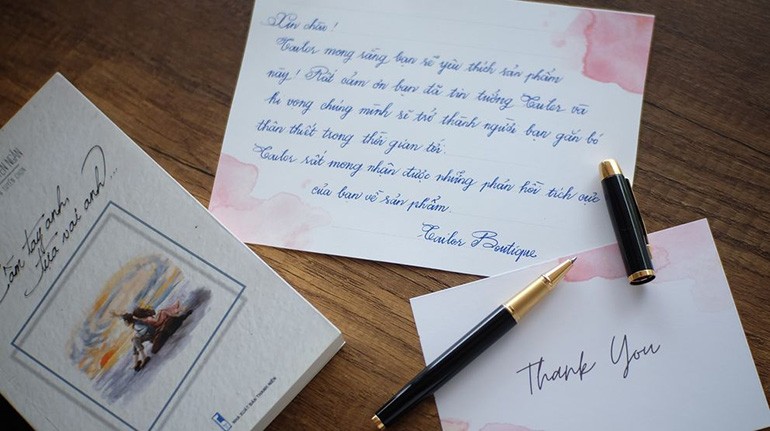 Xin chào !
Tailor mong rằng bạn sẽ yêu thích sản phẩm
này! Rất cảm ơn bạn đã tin tưởng Tailor và
hi vọng chúng mình sẽ trở thành người bạn gắn bó
thân thiết trong thời gian tới.
Tailor rất mong nhận được những phản hồi tích cực
của bạn về sản phẩm.
Tailor Boutique
NGÂN
Cầm tay anh,
dựa vai anh ...
NHÀ XUẤT BẢN THANH NIÊN
Thank You